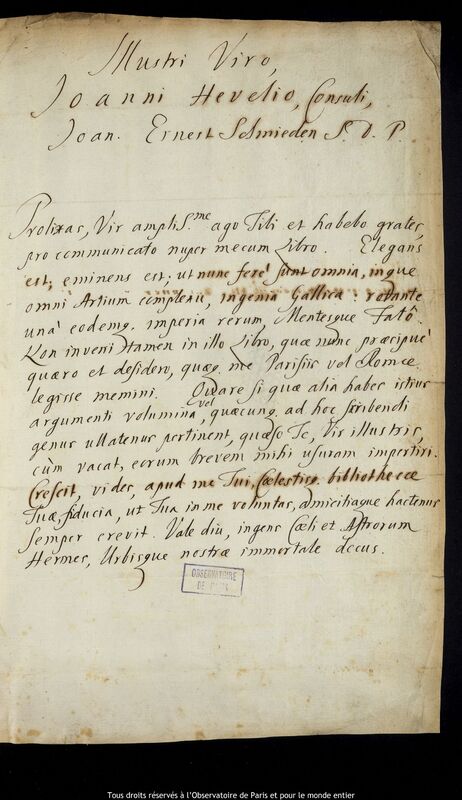 Illustri Viro,
Joanni Hevelio, Consuli,
Joan. Ernest Schmieden S. D. P.
Prolixas, Vir amplis.me ago Tibi et habebo grates,
pro communicato nuper mecum Libro. Elegans
est; eminens est; ut nunc ferè sunt omnia, inque
omni Artium complexu, ingenia Gallica: rotante
unà eodemq. imperia rerum, Mentesque Fatô.
Non inveni tamen in illo Libro, quæ nunc præcipuè
quæro et desidero, quæq. me Parisiis vel Romæ
legisse memini. Quare si quæ alia habes istius
argumenti volumina, vel quæcunq. ad hoc scribendi
genus ullatenus pertinent, quæso Te, Vir illustris,
cùm vacat, eorum brevem mihi usuram impertiri.
Crescit, vides, apud me Tui, Cœlestisq. bibliothecæ
Tuæ, fiducia, ut Tua in me voluntas, amicitiaque hactenus
semper crevit. Vale diu, ingens Cœli et Astrorum
Hermes, Urbisque nostræ immortale decus.
OBSERVATOIRE
DE PARIS
Tous droits réservés à l'Observatoire de Paris et pour le monde entier